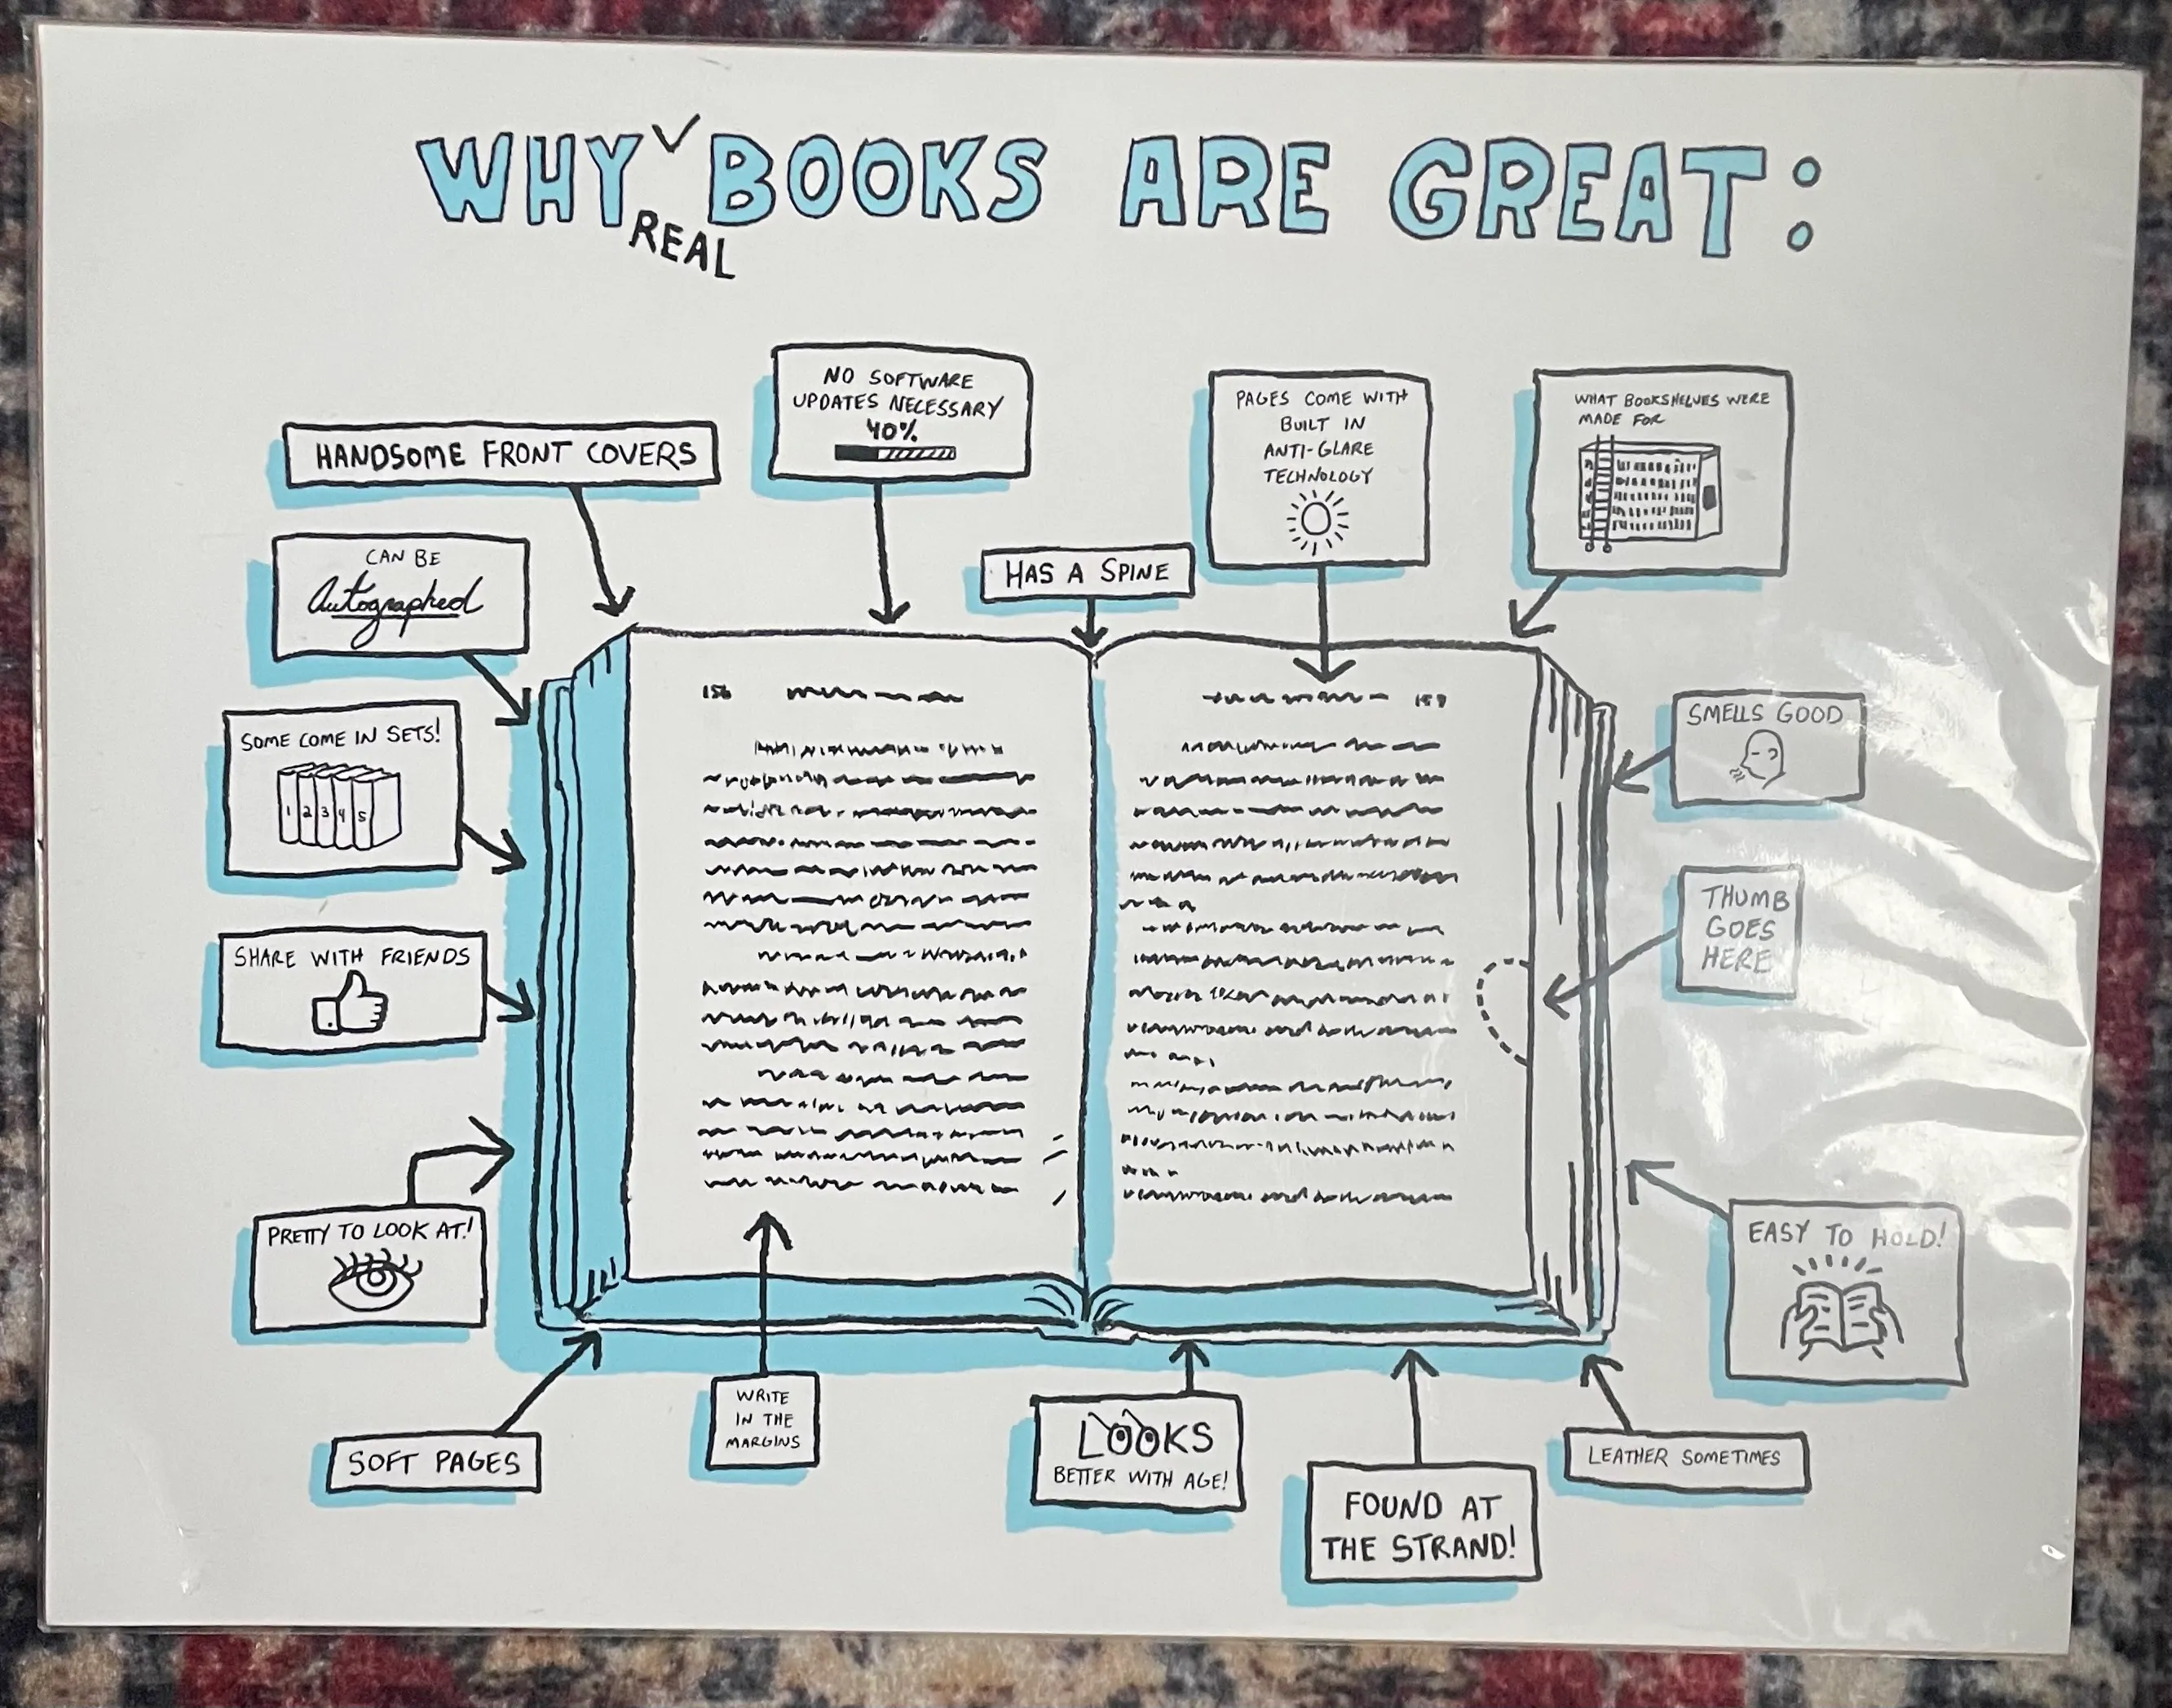 WHY BOOKS ARE GREAT:
REAL
NO SOFTWARE
UPDATES NECESSARY
40%
PAGES COME WITH
BUILT IN
ANTI-GLARE
TECHNOLOGY
WHAT BOOKSHELVES WERE
MADE FOR
HANDSOME FRONT COVERS
CAN BE
Autographed
HAS A SPINE
156
SOME COME IN SETS!
1 2 3 4 5
SMELLS GOOD
THUMB
GOES
HERE
SHARE WITH FRIENDS
PRETTY TO LOOK AT!
EASY TO HOLD!
SOFT PAGES
WRITE
IN THE
MARGINS
LOOKS
BETTER WITH AGE!
FOUND AT
THE STRAND!
LEATHER SOMETIMES